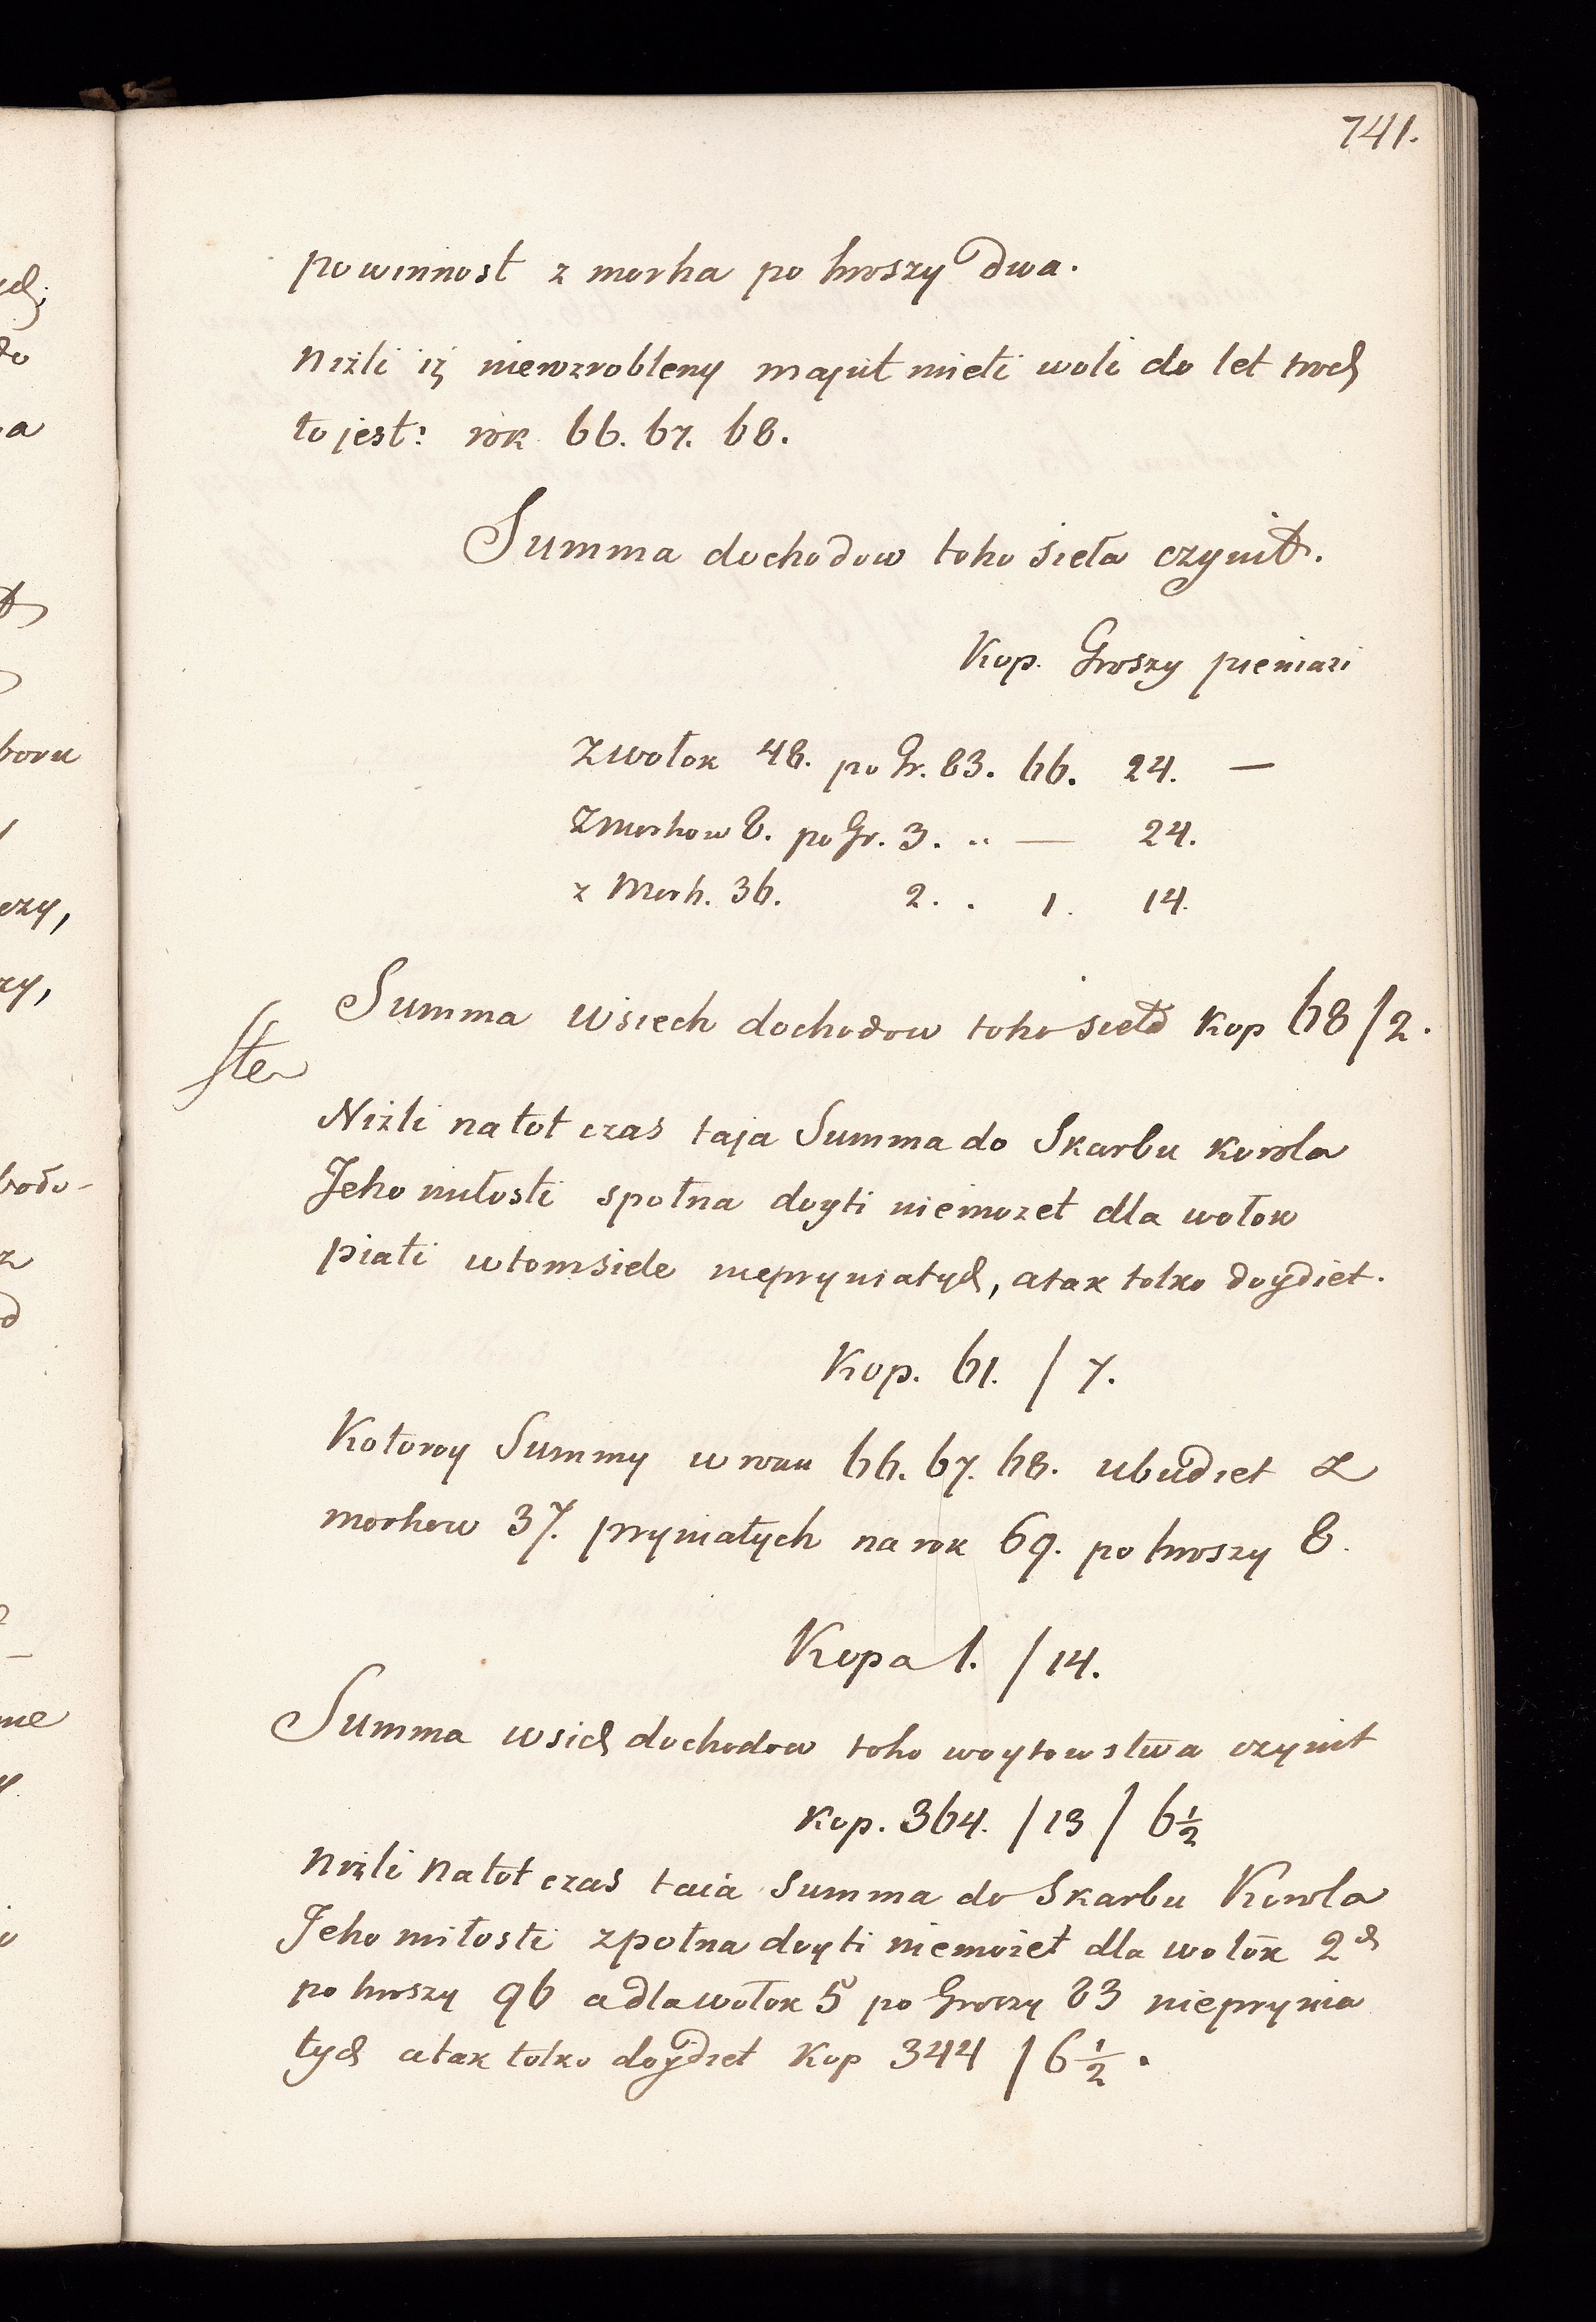 741.
powinnost z morha po hroszy dwa.
Niżli iż niewzrobleny majut mieti woli do let troch
to jest: rok 66. 67. 68.
Summa dochodow toho sieła czynit.
Kop. Groszy pieniazi
Z wołok 48. po Gr. 83. 66. 24. —
Z morhow 8. po Gr. 3. .. — 24.
z Morh. 36. 2. . 1. 14.
Summa wsiech dochodow toho sieła Kop 68/2.
Niżli na tot czas taja Summa do Skarbu korola
Jeho miłosti społna doyti niemozet dla wołok
piati w tom siele nieprymiatych, a tak tolko doydiet.
Kop. 61. / 7.
Kotoroy Summy w roku 66. 67. 68. ubudiet z
morhow 37. pryniatych na rok 69. po hroszy 8.
Kopa 1. / 14.
Summa wsich dochodow toho woytowstwa czynit
Kop. 364. / 13 / 6½
Niżli na tot czas taia Summa do Skarbu Korola
Jeho miłosti zpołna doyti niemożet dla wołok 2ch
po hroszy 96 a dla wołok 5 po Groszy 83 nieprynia
tych a tak tolko doydiet Kop 344 / 6½.